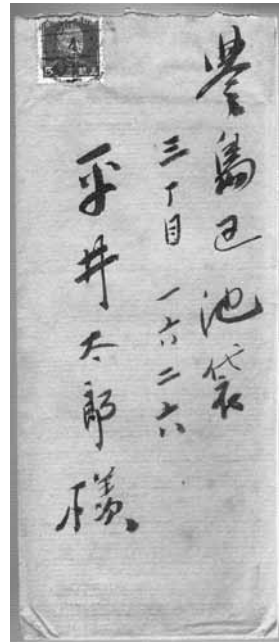 豊島区池袋
三丁目一六二六
平井太郎様